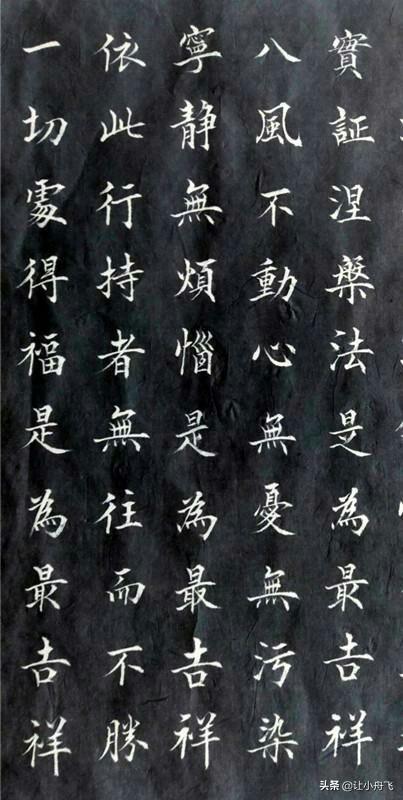 實証涅槃法是為最吉祥
八風不動心無憂無污染
寧静無煩惱是為最吉祥
依此行持者無往而不勝
一切處得福是為最吉祥
头条 @让小舟飞